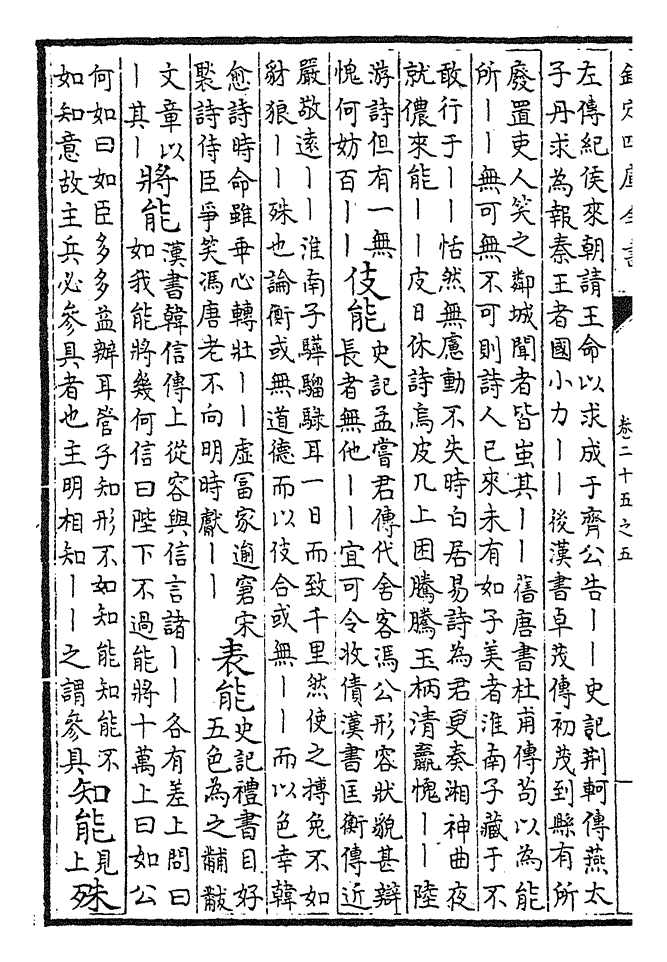 欽定四庫全書
卷二十五之五
左傳紀侯來朝請王命以求成于齊公告丨丨史記荆軻傳燕太
子丹求為報秦王者國小力丨丨後漢書卓茂傳初茂到縣有所
廢置吏人笑之鄰城聞者皆蚩其丨丨舊唐書杜甫傳茍以為能
所丨丨無可無不可則詩人已來未有如子美者淮南子藏于不
敢行于丨丨恬然無慮動不失時白居易詩為君更奏湘神曲夜
就儂來能丨丨皮日休詩烏皮几上困騰騰玉柄清羸愧丨丨陸
游詩但有一無
愧何妨百丨丨
伎能
史記孟嘗君傳代舍客馮公形容狀貌甚辯
長者無他丨丨宜可令收債漢書匡衡傳近
嚴敬遠丨丨淮南子驊騮騄耳一日而致千里然使之搏兔不如
豺狼丨丨殊也論衡或無道德而以伎合或無丨丨而以色幸韓
愈詩時命雖乖心轉壯丨丨虛富家逾窘宋
褧詩侍臣爭笑馮唐老不向明時獻丨丨
表能
史記禮書目好
五色為之黼黻
文章以
丨其丨
將能
漢書韓信傳上從容與信言諸丨丨各有差上問曰
如我能將幾何信曰陛下不過能將十萬上曰如公
何如曰如臣多多益辦耳管子知形不如知能知能不
如知意故主兵必參具者也主明相知丨丨之謂參具
知能
見
上
殊